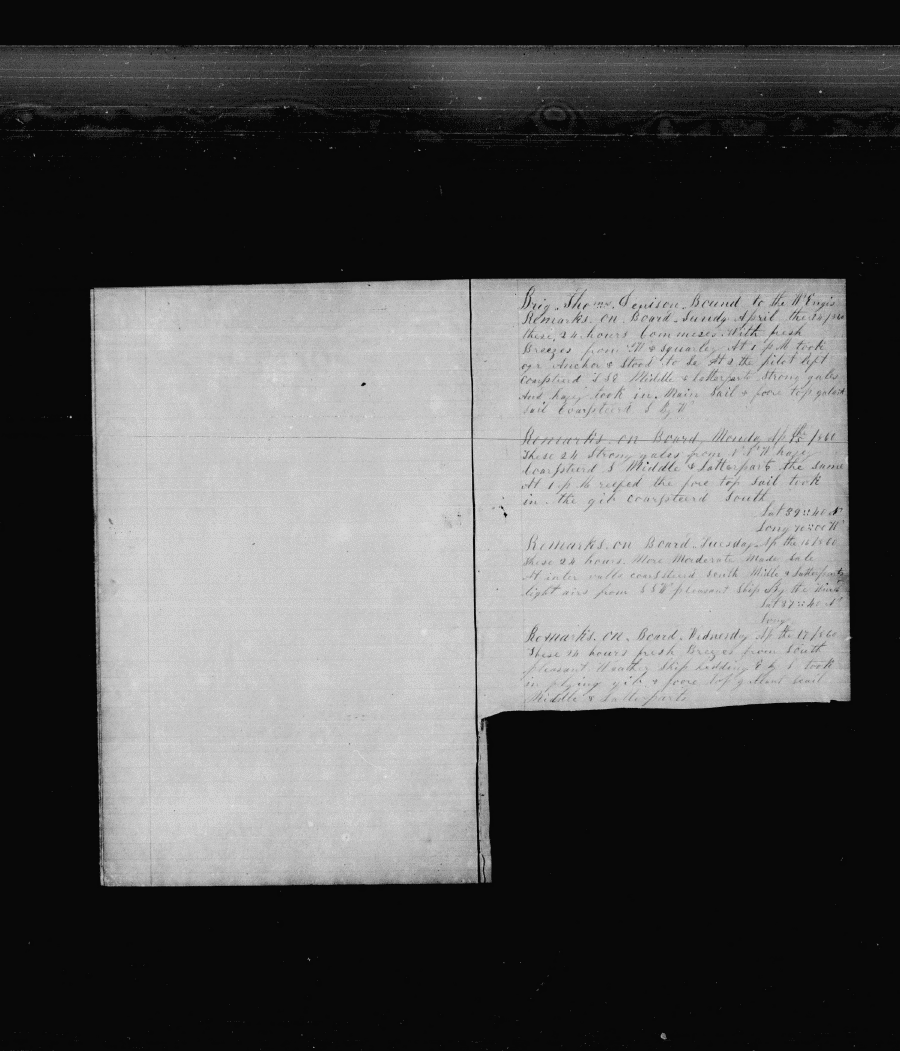 Brig Thomas Denison Bound to the W Engis
Remarks on Board Sundy April the 1860
these 24 hours Commeses With fresh
Breezes from W & Squarley At 1 p M took
our Anchor & Stood to Se At 2 the pilot left
Coarsteerd S S E Middle & latterparts Strong gales
And hazey took in Main Sail & foore top galant
Sail Coarsteerd S by W
Remarks on Board Mondy Ap the 15 1860
These 24 Strong gales from N W hazey
Coarssteerd S Middle & Latterparts the Same
At 1 p M reefed the fore top Sail took
in the gib Coarssteerd South
Lat 39 :: 40 N
Long 70 :: 00 W
Remarks on Board Tuesday Ap the 16 1860
These 24 hours More Morderate Made Sale
At inter valls coarssteerd South Midle & Latterparts
light airs from S S W pleasant Ship by the Wind
Lat 37 :: 40 N
Long
Remarks on Board Wednesdy Ap the 17 1860
These 24 hours fresh Breezes from South
pleasant Weather Ship hedding E by S took
in flying gib & foore top gallant Sail
Middle & Latterparts